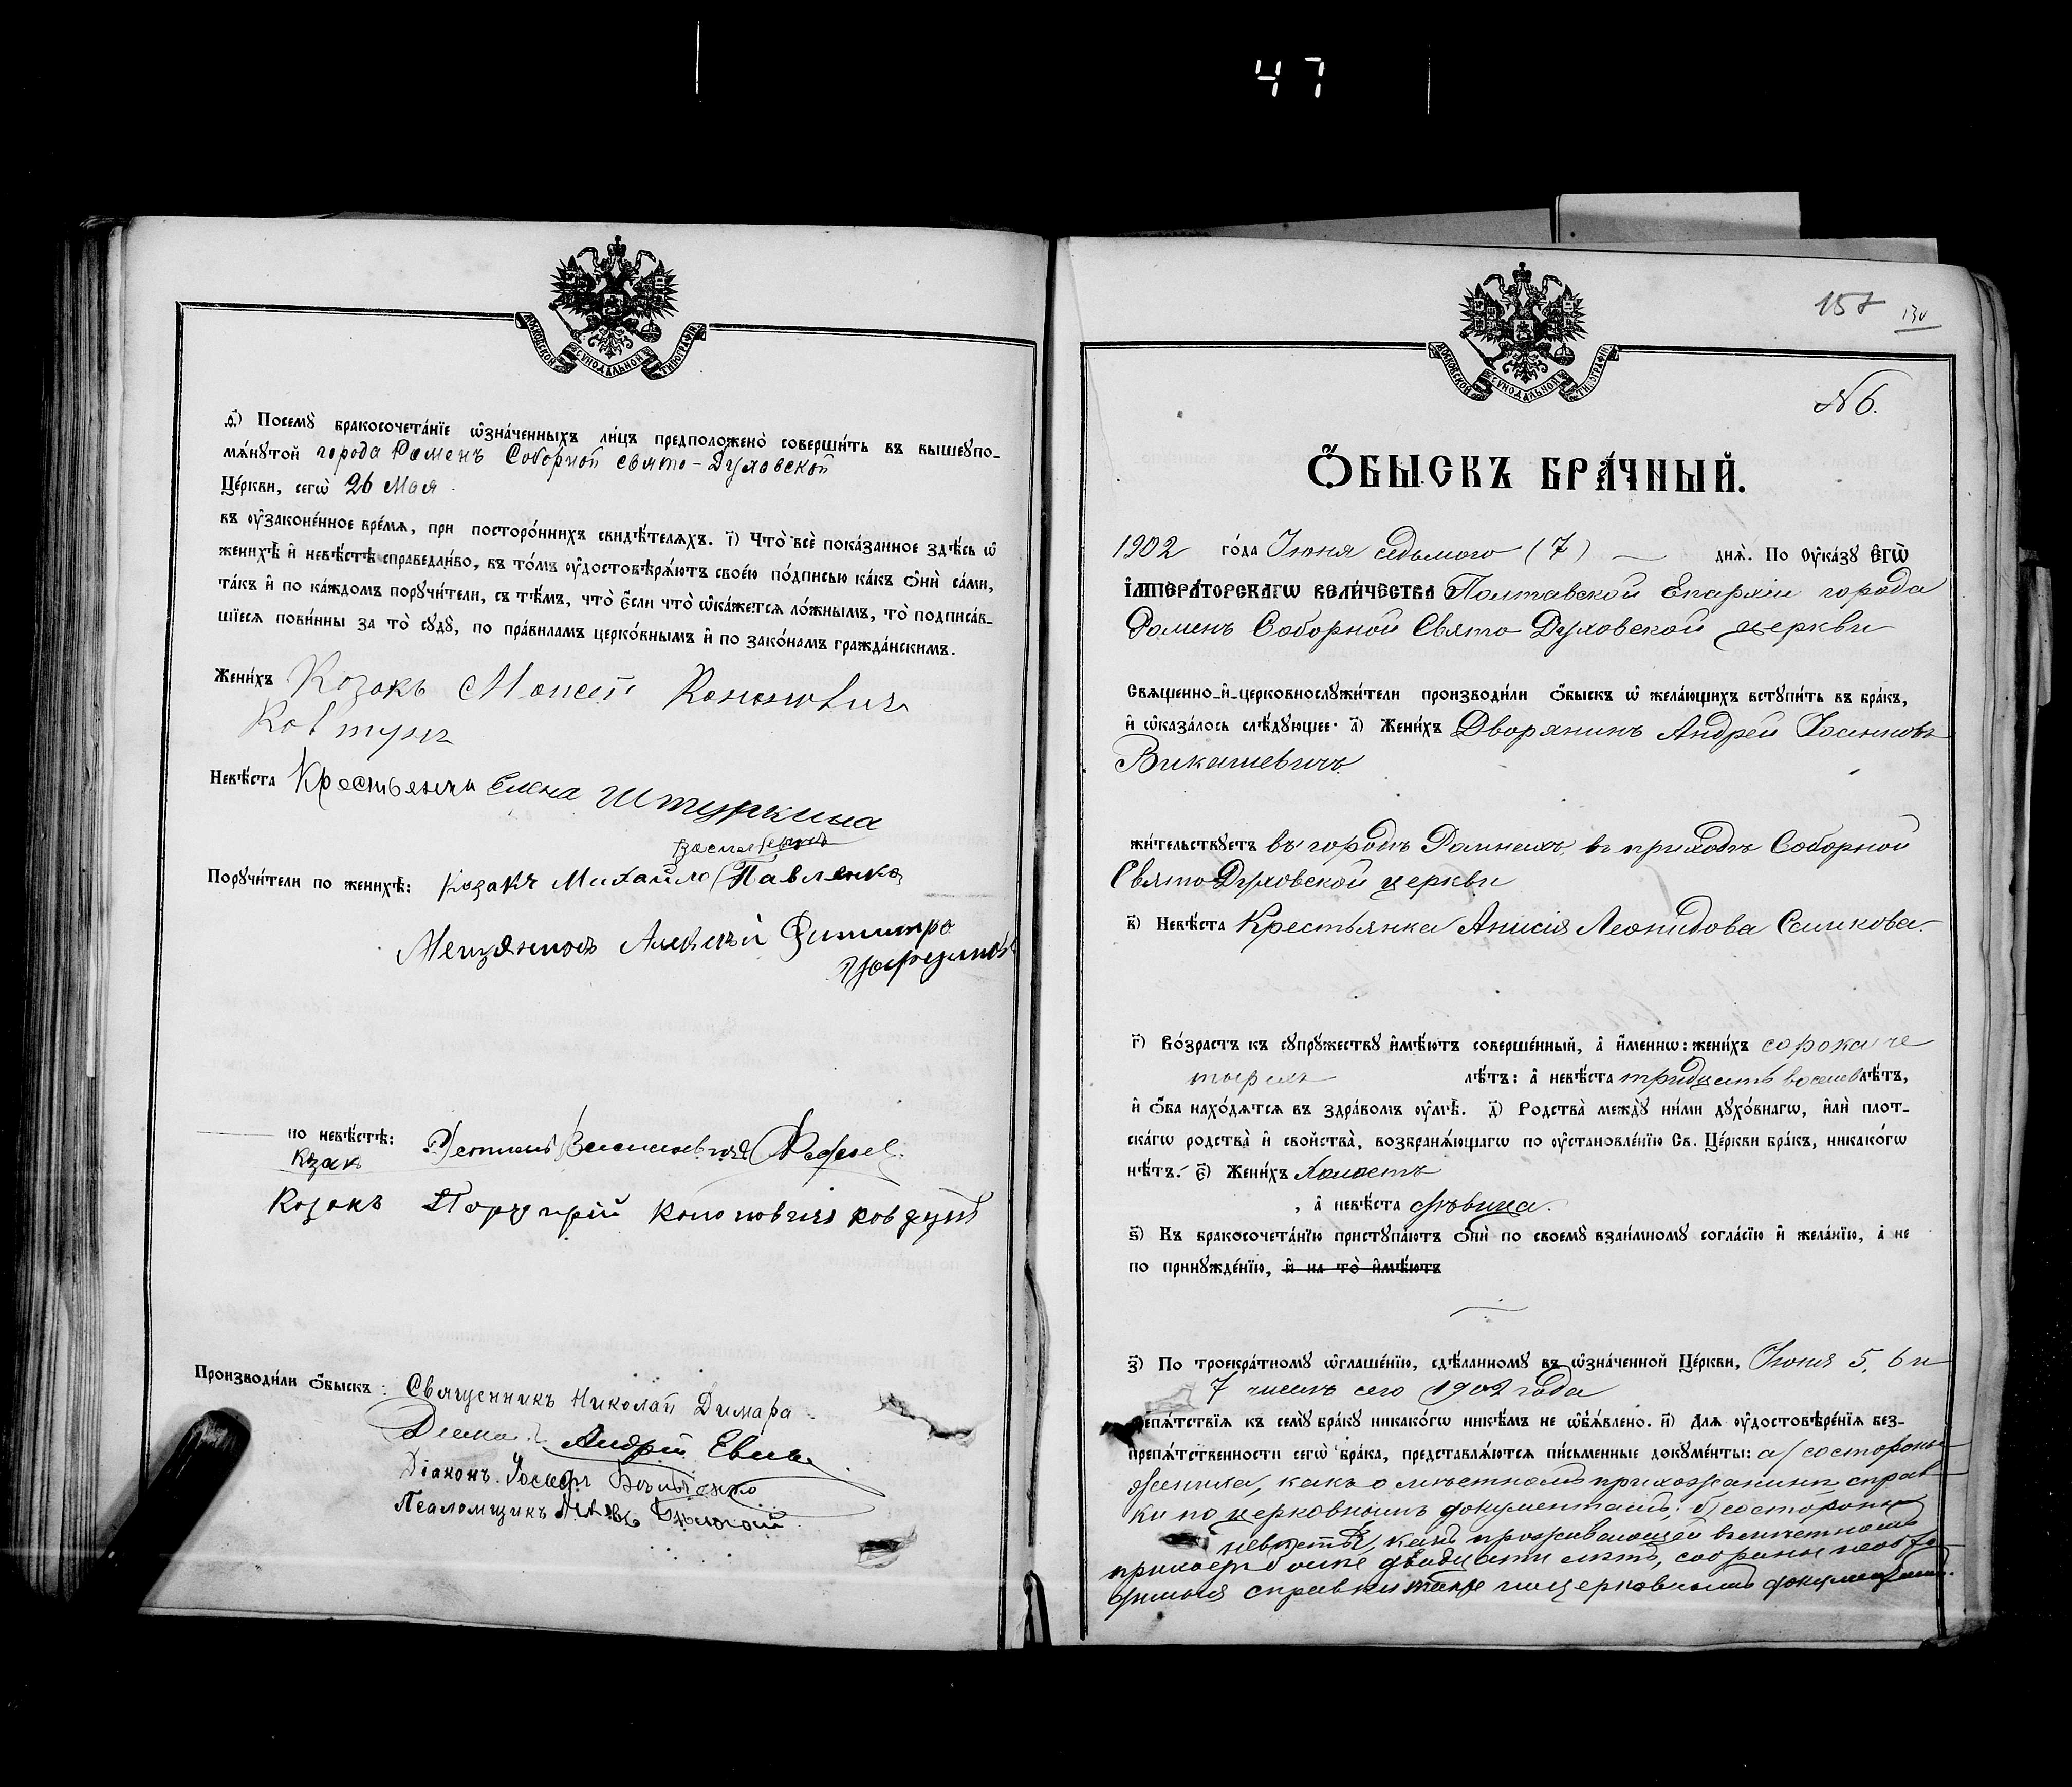 47
МОСКОВСКОЙ СѴНОДАЛЬНОЙ ТИПОГРАФІИ
ѳ҃) Посемꙋ̀ бракосочета́нїе ѡ҆зна́ченныхъ ли́цъ предположено̀ соверши́ть въ вышеꙋпо-
мѧ́нꙋтой города Роменъ Соборной Свято-Духовской
Це́ркви, сегѡ̀ 26 Мая
въ ᲂу҆зако́ненное вре́мѧ, при посторо́ннихъ свидѣ́телѧхъ. і҃) Что̀ всѐ пока́занное здѣ́сь ѡ҆
женихѣ̀ и҆ невѣ́стѣ справедли́во, въ то́мъ ᲂу҆достовѣрѧ́ютъ свое́ю по́дписью ка́къ ѻ҆нѝ са́ми,
та́къ и҆ по ка́ждомъ порꙋчи́тели, съ тѣ́мъ, что̀ є҆́сли что̀ ѡ҆ка́жетсѧ ло́жнымъ, то̀ подписа́в-
шїесѧ пови́нны за то̀ сꙋдꙋ̀, по пра́виламъ церко́внымъ и҆ по зако́намъ гражда́нскимъ.
Жени́хъ Козакъ Моисей Кононович
Ковтун
Невѣ́ста Крестьянка Елена Штуркина
Порꙋчи́тели по женихѣ̀: козакъ Михайло Павленко
Мещанинъ Алексѣй
по невѣ́стѣ:
Казак
Козакъ Порфирій Кононовичъ Ковтун
Производи́ли ѻ҆́быскъ: Священникъ Николай Димара
Діакон Андрей
Діаконъ Іосифъ
Псаломщикъ
МОСКОВСКОЙ СѴНОДАЛЬНОЙ ТИПОГРАФІИ
130
№ 6.
Ѻ҆́БЫСКЪ БРА́ЧНЫЙ.
1902 го́да Іюня седьмого (7) днѧ̀. По Оу҆ка́зꙋ Є҆ГѠ̀
І҆МПЕРА́ТОРСКАГѠ ВЕЛИ́ЧЕСТВА Полтавской Епархіи города
Роменъ Соборной Свято-Духовской церкви
свѧще́нно-и҆-церковнослꙋжи́тели производи́ли ѻ҆́быскъ ѡ҆ жела́ющихъ встꙋпи́ть въ бра́къ,
и҆ ѡ҆каза́лось слѣ́дꙋющее: а҃) Жени́хъ Дворянинъ Андрей Іосиповъ
Викашевичъ
жи́тельствꙋетъ въ городѣ Ромнахъ, въ приходѣ Соборной
Свято-Духовской церкви
в҃) Невѣ́ста Крестьянка Анисія Леонидова Саликова.
г҃) Во́зрастъ къ сꙋпрꙋ́жествꙋ и҆мѣ́ютъ соверше́нный, а҆ и҆́меннѡ: жени́хъ сорока че
тырехъ лѣ́тъ: а҆ невѣ́ста тридцать восемь лѣ́тъ,
и҆ ѻ҆́ба нахо́дѧтсѧ въ здра́вомъ ᲂу҆мѣ̀. д҃) Родства̀ междꙋ̀ ни́ми дꙋхо́внагѡ, и҆лѝ пло́т-
скагѡ родства̀ и҆ сво́йства̀, возбранѧ́ющагѡ по ᲂу҆становле́нїю Св. Це́ркви бра́къ, никако́гѡ
нѣ́тъ. є҃) Жени́хъ холостъ
, а҆ невѣ́ста дѣвица.
ѕ҃) Къ бракосочета́нїю пристꙋпа́ютъ ѻ҆нѝ по своемꙋ̀ взаи́мномꙋ согла́сїю и҆ жела́нїю, а҆ не
по принꙋжде́нїю, и҆ на то̀ и҆мѣ́ютъ
з҃) По троекра́тномꙋ ѡ҆глаше́нїю, сдѣ́ланномꙋ въ ѡ҆зна́ченной Це́ркви, Іюня 5, 6 и
7 чиселъ сего 1902 года
препѧ́тствїѧ къ семꙋ̀ бра́кꙋ никако́гѡ никѣ́мъ не ѡ҆б̾ѧ́влено. и҃) Длѧ ᲂу҆достовѣре́нїѧ без-
препѧ́тственности сегѡ̀ бра́ка, представлѧ́ютсѧ пи́сьменные докꙋме́нты: а) со стороны
жениха, какъ о мѣстномъ прихожанинѣ справ
ки по церковнымъ документамъ; б) со стороны
невѣсты, какъ проживающей въ мѣстномъ
приходѣ болѣе двадцати лѣтъ, собраны необхо
димыя справки также по церковнымъ документамъ.